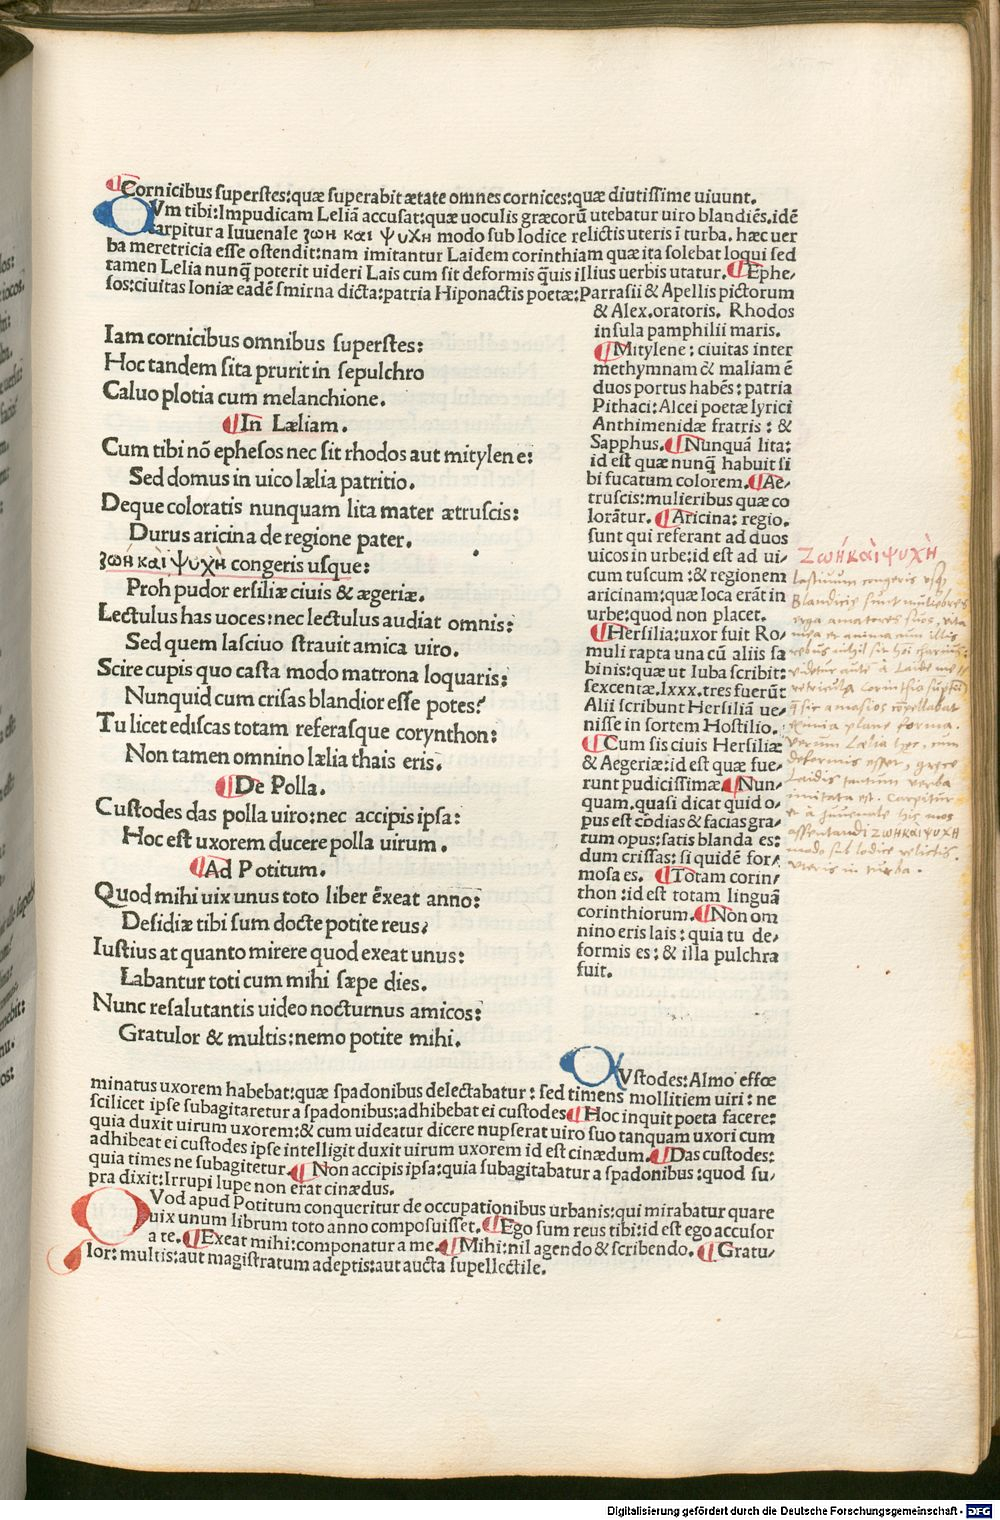 ¶Cornicibus superstes:quæ superabit ætate omnes cornices:quæ diutissime uiuunt.
CVm tibi:Impudicam Leliā accusat:quæ uoculis græcorū utebatur uiro blandiēs.idē
carpitur a Iuuenale ζωη και ψυχη modo sub lodice relictis uteris ī turba. hæc uer
ba meretricia esse ostendit:nam imitantur Laidem corinthiam quæ ita solebat loqui sed
tamen Lelia nunq̄ poterit uideri Lais cum sit deformis q̄uis illius uerbis utatur. ¶Ephe/
sos:ciuitas Ioniæ eadē smirna dicta:patria Hiponactis poetæ:Parrasii & Apellis pictorum
& Alex.oratoris. Rhodos
insula pamphilii maris.
¶Mitylene: ciuitas inter
methymnam & maliam ē
duos portus habēs: patria
Pithaci: Alcei poetæ lyrici
Anthimenidæ fratris: &
Sapphus. ¶Nunquā lita:
id est quæ nunq̄ habuit si
bi fucatum colorem. ¶Ae/
truscis:mulieribus quæ co
lorātur. ¶Aricina: regio.
sunt qui referant ad duos
uicos in urbe:id est ad ui/
cum tuscum :& regionem
aricinam:quæ loca erāt in
urbe:quod non placet.
¶Hersilia:uxor fuit Ro/
muli rapta una cū aliis sa
binis:quæ ut Iuba scribit:
sexcentæ.lxxx.tres fuerūt
Alii scribunt Hersiliā ue/
nisse in sortem Hostilio.
¶Cum sis ciuis Hersiliæ
& Aegeriæ:id est quæ fue/
runt pudicissimæ. ¶Nun/
quam.quasi dicat quid o/
pus est cōdias & facias gra/
tum opus:satis blanda es:
dum crissas: si quidē for/
mosa es. ¶Totam corin/
thon :id est totam linguā
corinthiorum. ¶Non om
nino eris lais: quia tu de/
formis es: & illa pulchra
fuit.
Iam cornicibus omnibus superstes:
Hoc tandem sita prurit in sepulchro
Caluo plotia cum melanchione.
¶In Læliam.
Cum tibi nō ephesos nec sit rhodos aut mitylene:
Sed domus in uico lælia patritio.
Deque coloratis nunquam lita mater ætruscis:
Durus aricina de regione pater.
ζωὴ καὶ ψυχὴ congeris usque:
Proh pudor ersiliæ ciuis & ægeriæ.
Lectulus has uoces: nec lectulus audiat omnis:
Sed quem lasciuo strauit amica uiro.
Scire cupis quo casta modo matrona loquaris:
Nunquid cum crisas blandior esse potes?
Tu licet ediscas totam referasque corynthon:
Non tamen omnino lælia thais eris.
¶De Polla.
Custodes das polla uiro: nec accipis ipsa:
Hoc est uxorem ducere polla uirum.
¶Ad Potitum.
Quod mihi uix unus toto liber ēxeat anno:
Desidiæ tibi sum docte potite reus.
Iustius at quanto mirere quod exeat unus:
Labantur toti cum mihi sæpe dies.
Nunc resalutantis uideo nocturnus amicos:
Gratulor & multis: nemo potite mihi.
Ζωὴ καὶ ψυχὴ
Lasciuum congeris usq̄
Blanditie sunt muliebres
erga amatores suos, vita
mea et anima cum illis
verum Lælia hæc, cum
deformis esset, græce
Laidis tantum verba
imitata est. Carpitur
et à Juuenale hic mos
assentandi ΖΩΗ ΚΑΙ ΨΥΧΗ
modo sub lodice relictis.
vteris in turba.
CVstodes: Almo effœ
minatus uxorem habebat:quæ spadonibus delectabatur: sed timens mollitiem uiri: ne
scilicet ipse subagitaretur a spadonibus:adhibebat ei custodes ¶Hoc inquit poeta facere:
quia duxit uirum uxorem:& cum uideatur dicere nupserat uiro suo tanquam uxori cum
adhibeat ei custodes ipse intelligit duxit uirum uxorem id est cinædum. ¶Das custodes:
quia times ne subagitetur. ¶Non accipis ipsa:quia subagitabatur a spadonibus :quod su/
pra dixit:Irrupi lupe non erat cinædus.
QVod apud Potitum conqueritur de occupationibus urbanis:qui mirabatur quare
uix unum librum toto anno composuisset. ¶Ego sum reus tibi:id est ego accusor
a te. ¶Exeat mihi:componatur a me. ¶Mihi:nil agendo & scribendo. ¶Gratu/
lor: multis:aut magistratum adeptis:aut aucta supellectile.
Digitalisierung gefördert durch die Deutsche Forschungsgemeinschaft - DFG